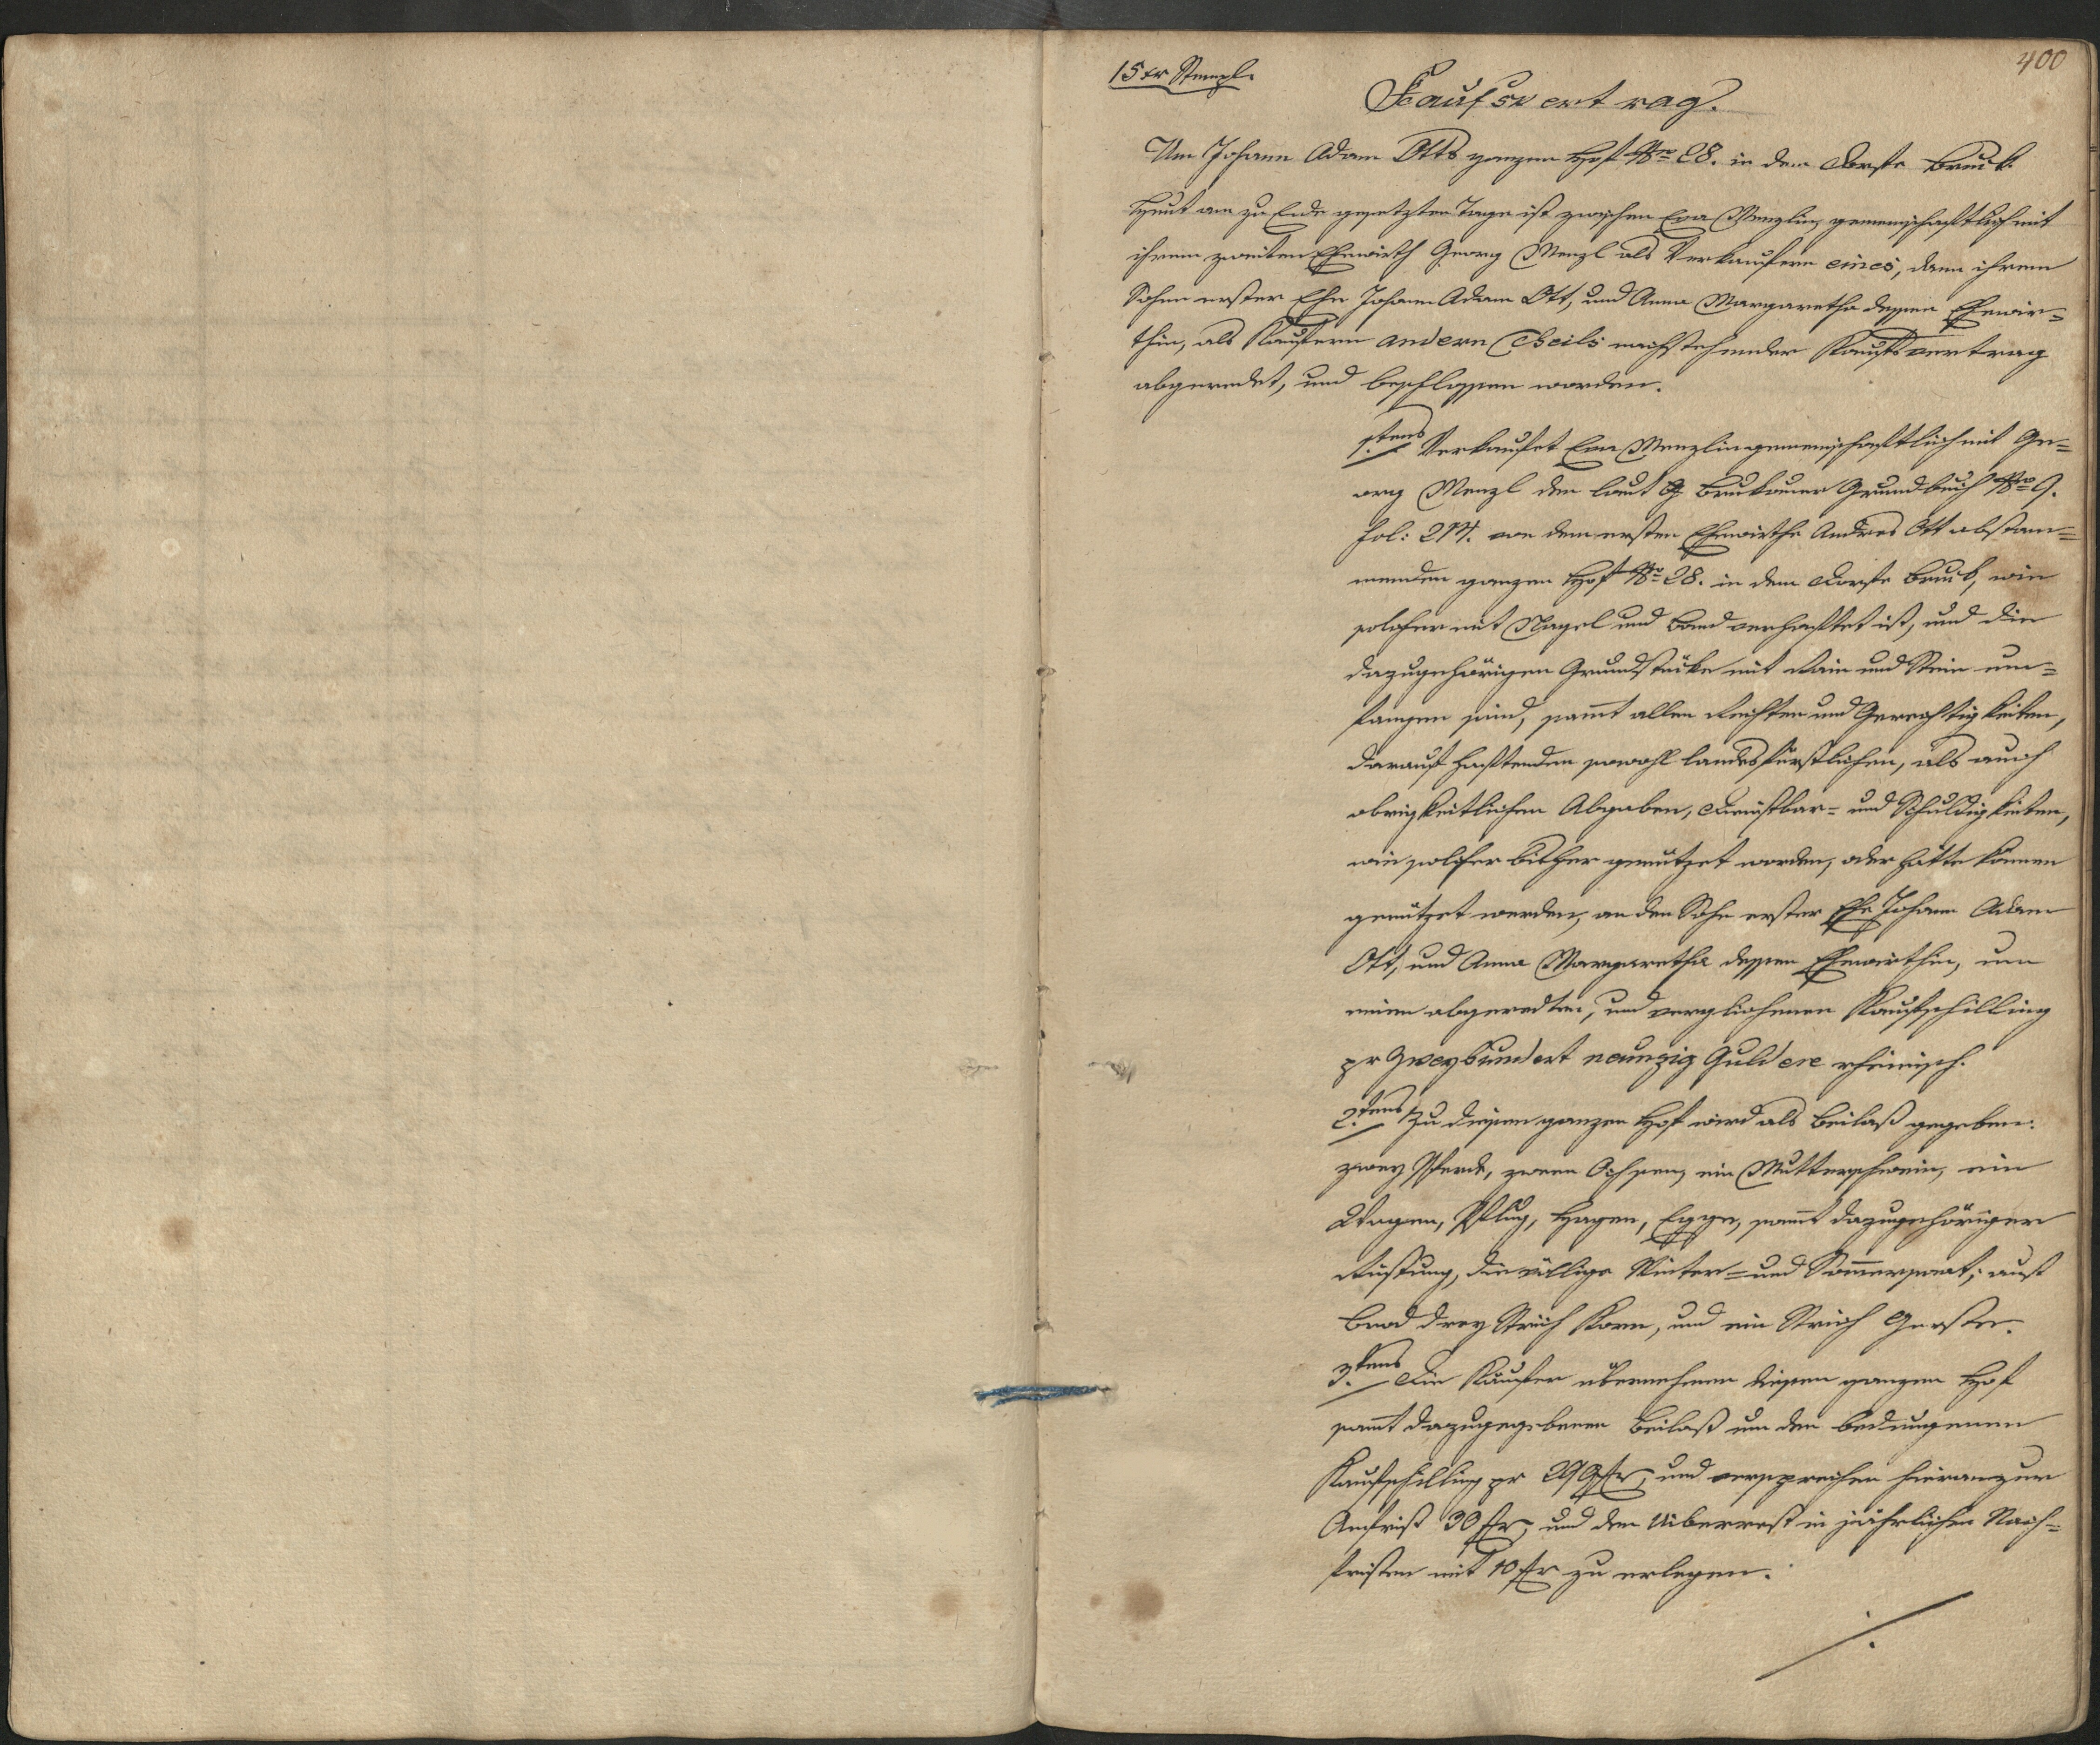 400
15 xr Stempl.
Kaufsvertrag.
Um Johann Adam Otts ganzen Hof Nro 28. in dem Dorfe Bruck
Heut am zu Ende gesetzten Tage ist zwischen Eva Menzlin gemeinschaftlich mit
ihrem zweiten Ehewirth Georg Menzl als Verkaufern eines, dann ihrem
Sohne erster Ehe Johann Adam Ott, und Anna Margaretha dessen Ehewir=
thin, als Kaufern andern Theils nachstehender Kaufsvertrag
abgeredet, und beschlossen worden.
1.stens Verkaufet Eva Menzlin gemeinschaftlich mit Ge=
org Menzl den laut Brukauer Grundbuch Nro 9.
Fol: 214. von dem ersten Ehewirthe Andres Ott abstam=
menden ganzen Hof Nro 28. in dem Dorfe Bruck, wie
solcher mit Nagel und Band verhaftet ist, und die
dazugehörigen Grundstücke mit Rain und Stein um=
fangen sind, sammt allen Rechten und Gerechtigkeiten,
darauf haftenden sowohl landesfürstlichen, als auch
obrigkeitlichen Abgaben, Dienstbar= und Schuldigkeiten,
wie solcher bisher genützet worden, oder hätte können
genützet werden, an den Sohn erster Ehe Johann Adam
Ott, und Anna Margaretha dessen Ehewirthin, um
einen abgeredten, und verglichenen Kaufschilling
pr Zweyhundert neunzig Gulden rheinisch.
2.tens Zu diesem ganzen Hof wird als Beilaß gegeben:
zwey Pferde, zween Ochsen, ein Mutterschwein, ein
Wagen, Pflug, Hagen, Egge, sammt dazugehöriger
Rüstung, die völlige Winter= und Sommersaat; auf
Brod drey Strich Korn, und ein Strich Gersten.
3.tens Die Käufer übernehmen diesen ganzen Hof
sammt dazugegebenen Beilaß um den bedungenen
Kaufschilling pr 290 fr, und versprechen hieran zur
Anfrist 30 fr, und den Uiberrest in jährlichen Nach=
fristen mit 10 fr zu erlegen.
./.